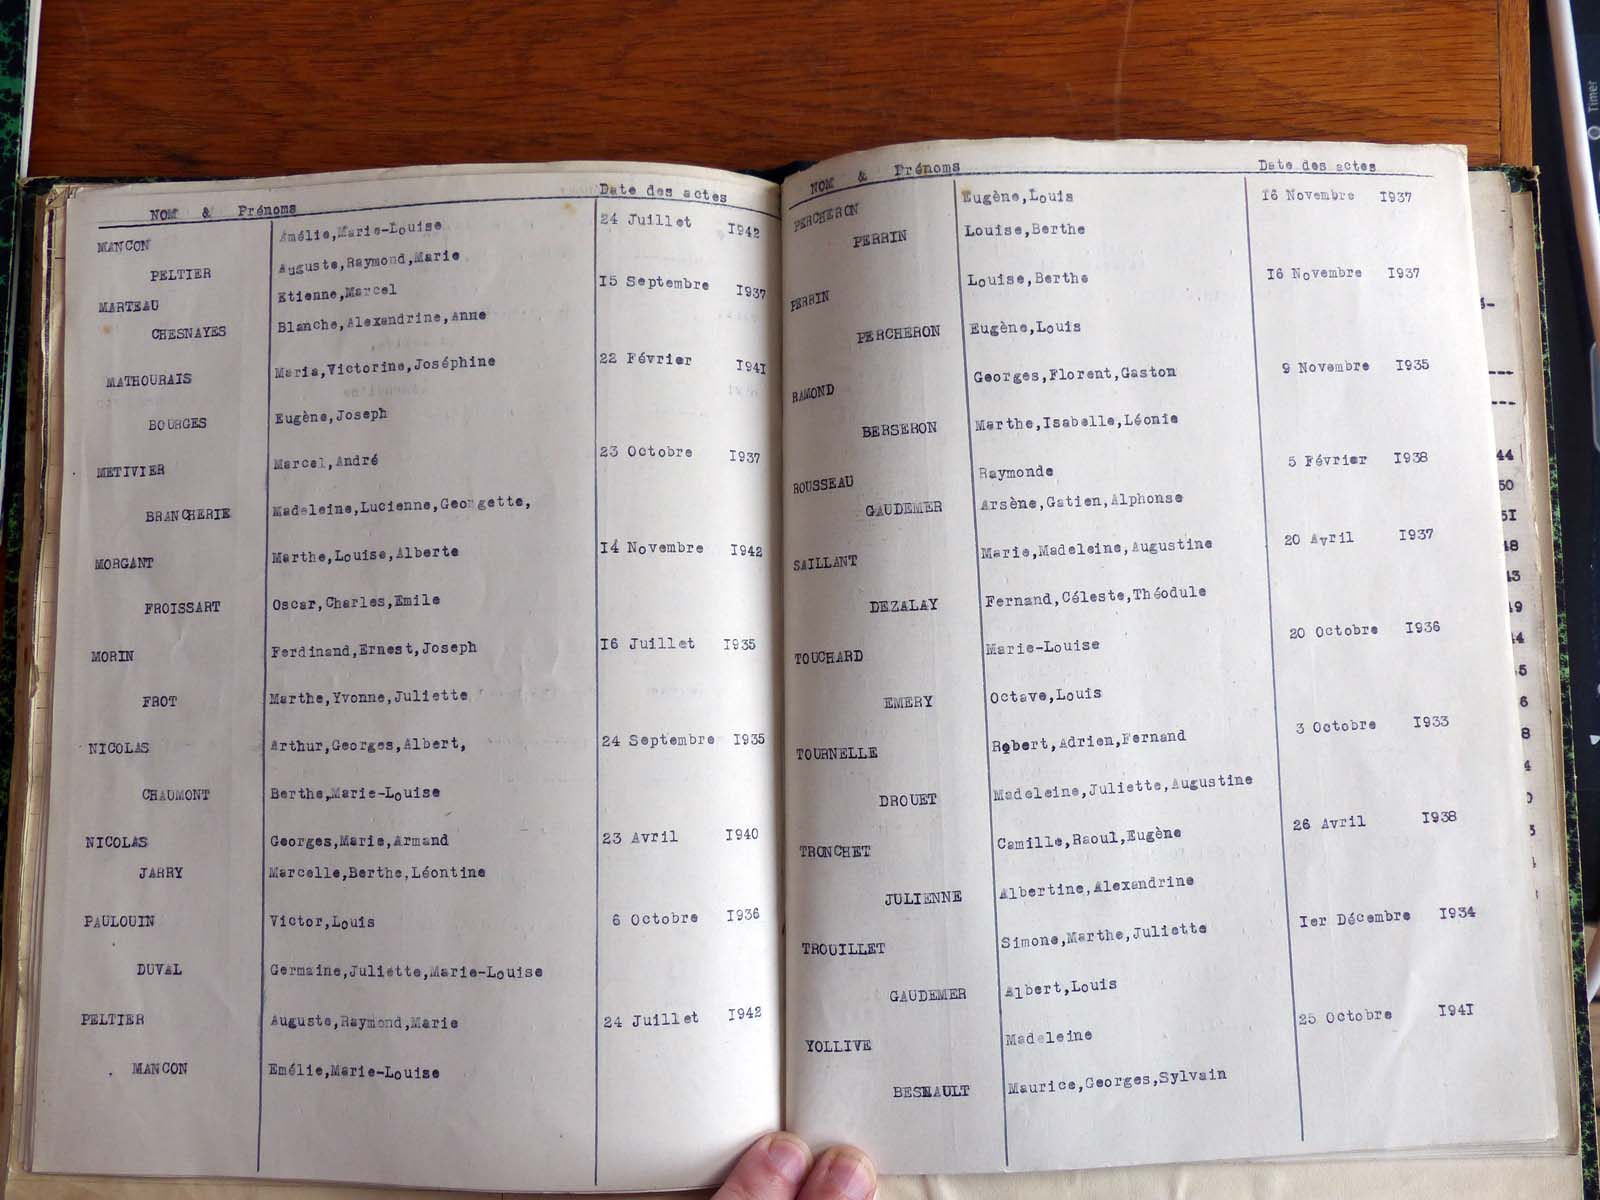 NOM & Prénoms Date des actes
MANCON Amélie,Marie-Louise 24 Juillet 1942
PELTIER Auguste,Raymond,Marie
MARTEAU Etienne,Marcel 15 Septembre 1937
CHESNAYES Blanche,Alexandrine,Anne
MATHOURAIS Maria,Victorine,Joséphine 22 Février 1941
BOURGES Eugène,Joseph
METIVIER Marcel,André 23 Octobre 1937
BRANCHERIE Madeleine,Lucienne,Georgette,
MORGANT Marthe,Louise,Alberte 14 Novembre 1942
FROISSART Oscar,Charles,Emile
MORIN Ferdinand,Ernest,Joseph 16 Juillet 1935
FROT Marthe,Yvonne,Juliette
NICOLAS Arthur,Georges,Albert, 24 Septembre 1935
CHAUMONT Berthe,Marie-Louise
NICOLAS Georges,Marie,Armand 23 Avril 1940
JARRY Marcelle,Berthe,Léontine
PAULOUIN Victor,Louis 6 Octobre 1936
DUVAL Germaine,Juliette,Marie-Louise
PELTIER Auguste,Raymond,Marie 24 Juillet 1942
MANCON Emélie,Marie-Louise
NOM & Prénoms Date des actes
PERCHERON Eugène,Louis 16 Novembre 1937
PERRIN Louise,Berthe
PERRIN Louise,Berthe 16 Novembre 1937
PERCHERON Eugène,Louis
RAMOND Georges,Florent,Gaston 9 Novembre 1935
BERSERON Marthe,Isabelle,Léonie
ROUSSEAU Raymonde 5 Février 1938
GAUDEMER Arsène,Gatien,Alphonse
SAILLANT Marie,Madeleine,Augustine 20 Avril 1937
DEZALAY Fernand,Céleste,Théodule
TOUCHARD Marie-Louise 20 Octobre 1936
EMERY Octave,Louis
TOURNELLE Robert,Adrien,Fernand 3 Octobre 1933
DROUET Madeleine,Juliette,Augustine
TRONCHET Camille,Raoul,Eugène 26 Avril 1938
JULIENNE Albertine,Alexandrine
TROUILLET Simone,Marthe,Juliette 1er Décembre 1934
GAUDEMER Albert,Louis
YOLLIVE Madeleine 25 Octobre 1941
BESNAULT Maurice,Georges,Sylvain
Timer